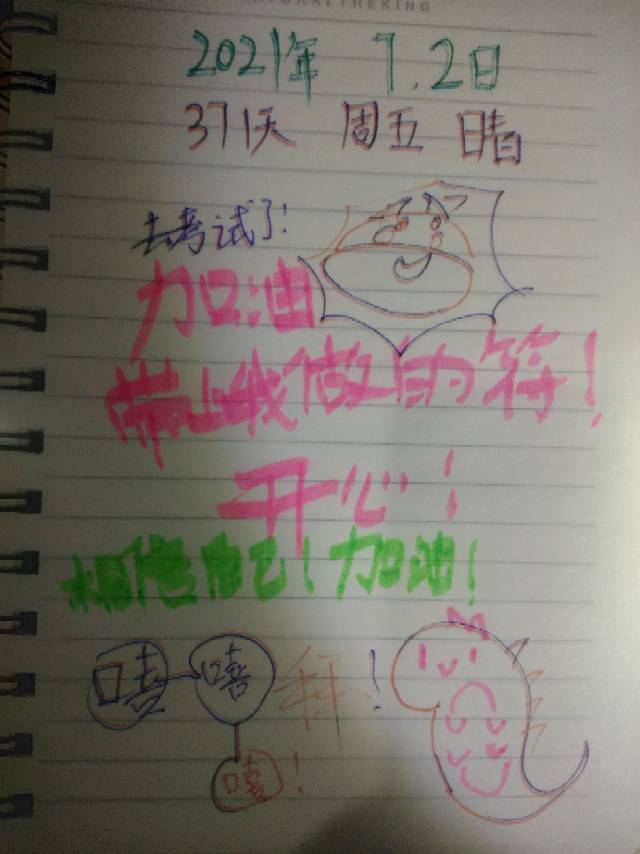 2021年 7.2日
371天 周五 晴
去考试了!
加油
带上我做的符!
开心!
相信自己!加油!
嘻嘻
拜!
嘻!